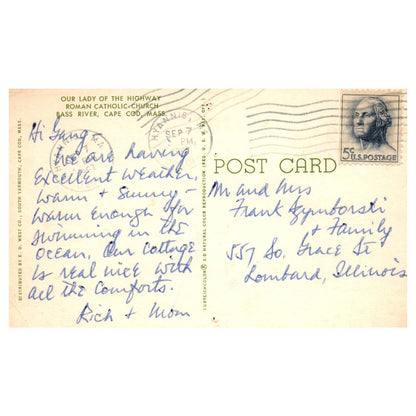 OUR LADY OF THE HIGHWAY
ROMAN CATHOLIC CHURCH
BASS RIVER, CAPE COD, MASS.
Hi Gang -
We are having
Excellent Weather,
Warm & Sunny -
Warm enough for
swimming in the
Ocean. Our Cottage
is real nice with
all the comforts.
Rich + Mom
DISTRIBUTED BY E. D. WEST CO., SOUTH YARMOUTH, CAPE COD, MASS.
HYANNIS,
SEP 7
PM
5¢ U.S. POSTAGE
POST CARD
M and Mrs
Frank Szymborski
& Family
557 So. Grace St
Lombard, Illinois